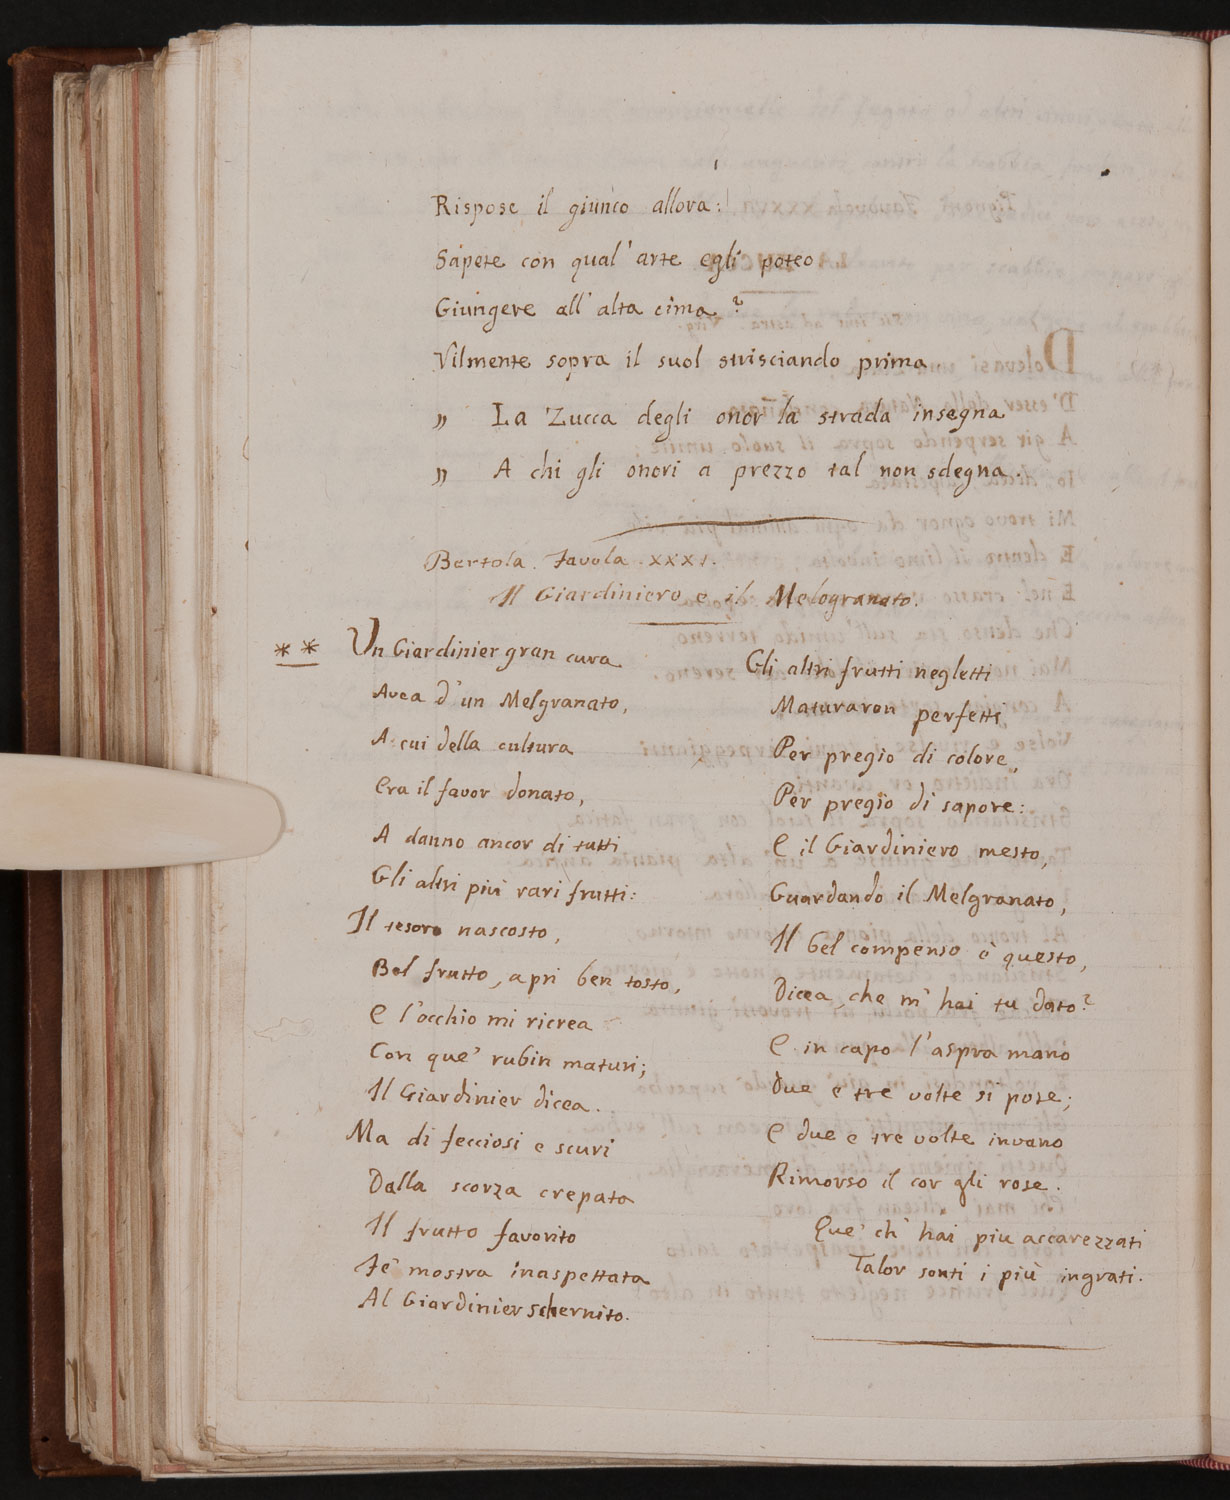 Rispose il giunco allora:
Sapete con qual' arte egli poteo
Giungere all' alta cima?
Vilmente sopra il suol strisciando prima
„ La Zucca degli onor la strada insegna
„ A chi gli onori a prezzo tal non sdegna.
Bertola. Favola. XXXI.
Il Giardiniero e il Melogranato.
** Un Giardinier gran cura
Avea d'un Melgranato,
A cui della cultura
Era il favor donato,
A danno ancor di tutti
Gli altri più rari frutti:
Il tesoro nascosto,
Bel frutto, apri ben tosto,
E l'occhio mi ricrea
Con que' rubin maturi;
Il Giardinier dicea.
Ma di fecciosi e scuri
Dalla scorza crepata
Il frutto favorito
Fe' mostra inaspettata
Al Giardinier schernito.
Gli altri frutti negletti
Maturaron perfetti
Per pregio di colore,
Per pregio di sapore:
E il Giardiniero mesto,
Guardando il Melgranato,
Il bel compenso è questo,
Dicea, che m' hai tu dato?
E in capo l'aspra mano
Due e tre volte si pose;
E due e tre volte invano
Rimorso il cor gli rose.
Que' ch' hai più accarezzati
Talor sonti i più ingrati.